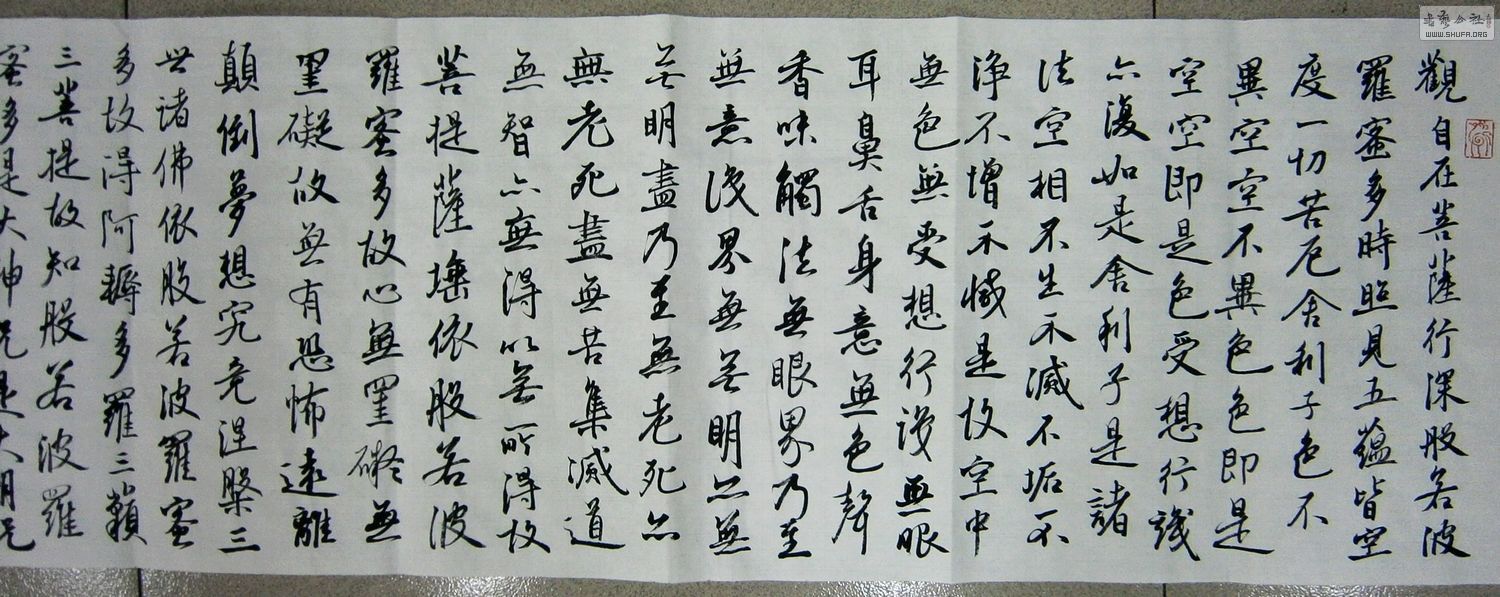 觀自在菩薩行深般若波
羅蜜多時照見五蘊皆空
度一切苦厄舍利子色不
異空空不異色色即是
空空即是色受想行識
亦復如是舍利子是諸
法空相不生不滅不垢不
淨不增不減是故空中
無色無受想行識無眼
耳鼻舌身意無色聲
香味觸法無眼界乃至
無意識界無無明亦無
無明盡乃至無老死亦
無老死盡無苦集滅道
無智亦無得以無所得故
菩提薩埵依般若波
羅蜜多故心無罣礙無
罣礙故無有恐怖遠離
顛倒夢想究竟涅槃三
世諸佛依般若波羅蜜
多故得阿耨多羅三藐
三菩提故知般若波羅
蜜多是大神咒是大明咒
書藝公社
WWW.SHUFA.ORG